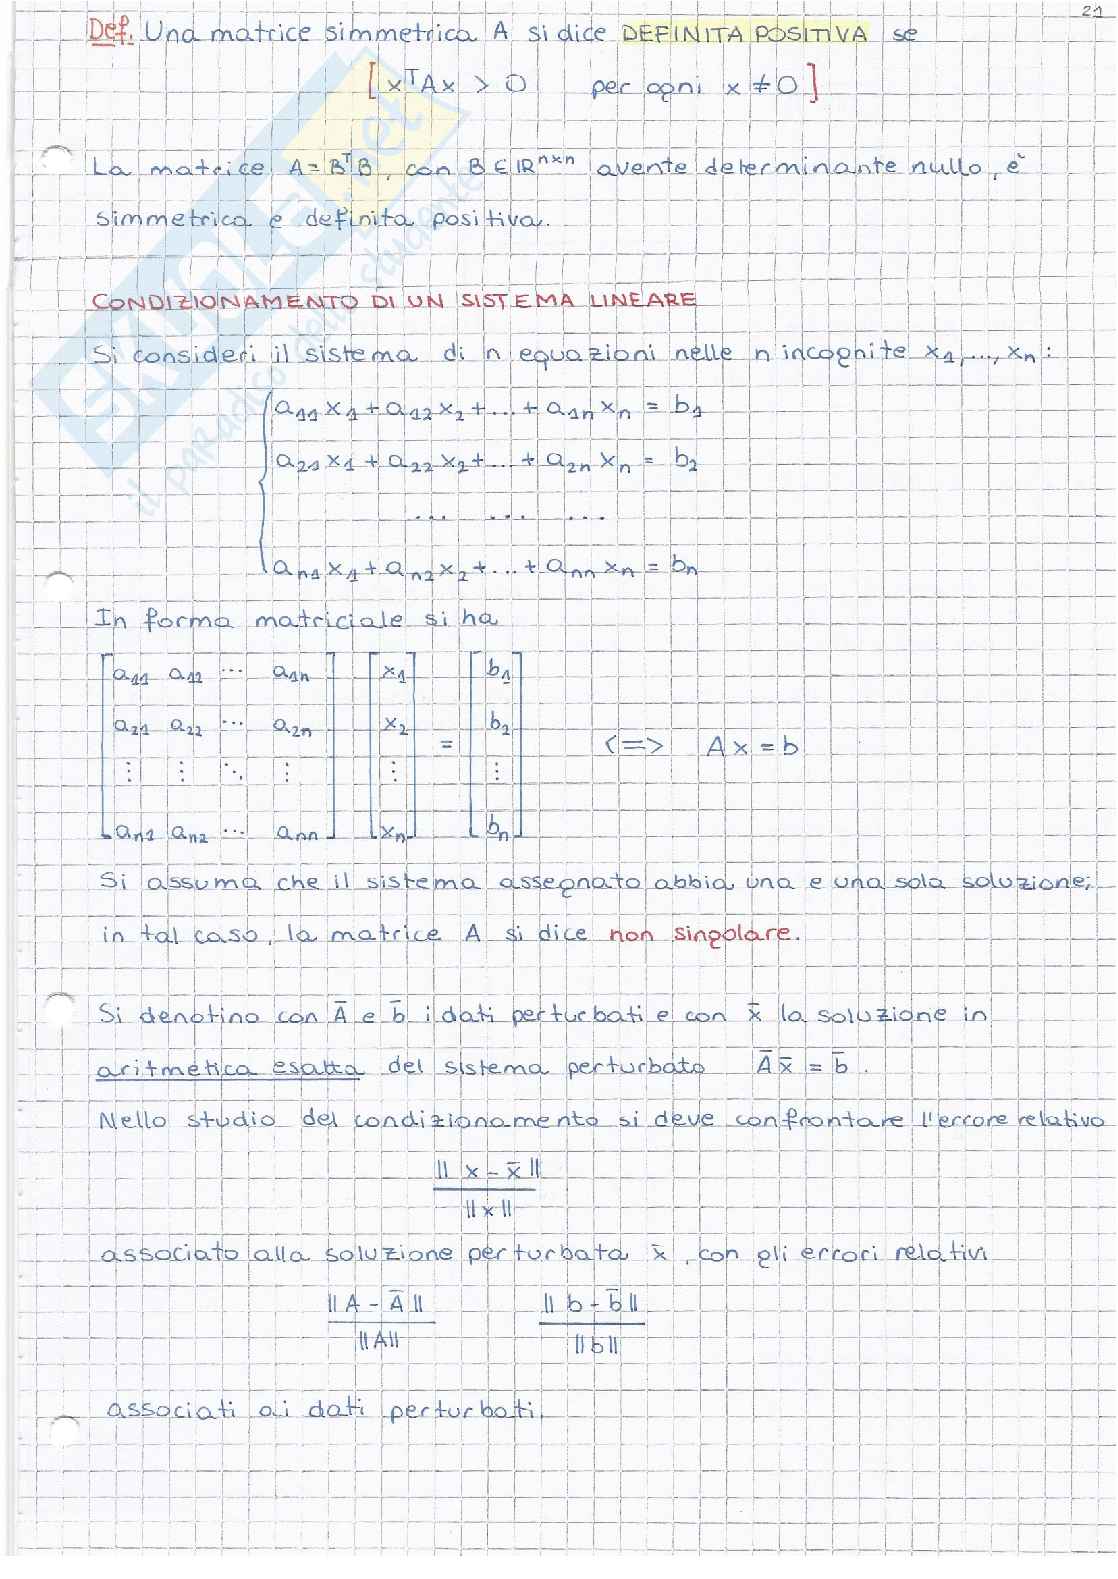 21
Def. Una matrice simmetrica A si dice DEFINITA POSITIVA se
[xᵀAx > 0 per ogni x ≠ 0]
La matrice A = BᵀB, con B ∈ ℝⁿˣⁿ avente determinante nullo, è
simmetrica e definita positiva.
CONDIZIONAMENTO DI UN SISTEMA LINEARE
Si consideri il sistema di n equazioni nelle n incognite x₁, ..., xₙ :
a₁₁x₁ + a₁₂x₂ + ... + a₁ₙxₙ = b₁
a₂₁x₁ + a₂₂x₂ + ... + a₂ₙxₙ = b₂
... ... ...
aₙ₁x₁ + aₙ₂x₂ + ... + aₙₙxₙ = bₙ
In forma matriciale si ha
a₁₁ a₁₂ ⋯ a₁ₙ x₁ b₁
a₂₁ a₂₂ ⋯ a₂ₙ x₂ b₂
= <=> Ax = b
⋮ ⋮ ⋱ ⋮ ⋮ ⋮
aₙ₁ aₙ₂ ⋯ aₙₙ xₙ bₙ
Si assuma che il sistema assegnato abbia una e una sola soluzione;
in tal caso, la matrice A si dice non singolare.
Si denotino con Ā e b̄ i dati perturbati e con x̄ la soluzione in
aritmetica esatta del sistema perturbato Āx̄ = b̄.
Nello studio del condizionamento si deve confrontare l'errore relativo
|| x - x̄ ||
|| x ||
associato alla soluzione perturbata x̄, con gli errori relativi
|| A - Ā || || b - b̄ ||
|| A || || b ||
associati ai dati perturbati.
SKUOLA.net
il paradiso dello studente